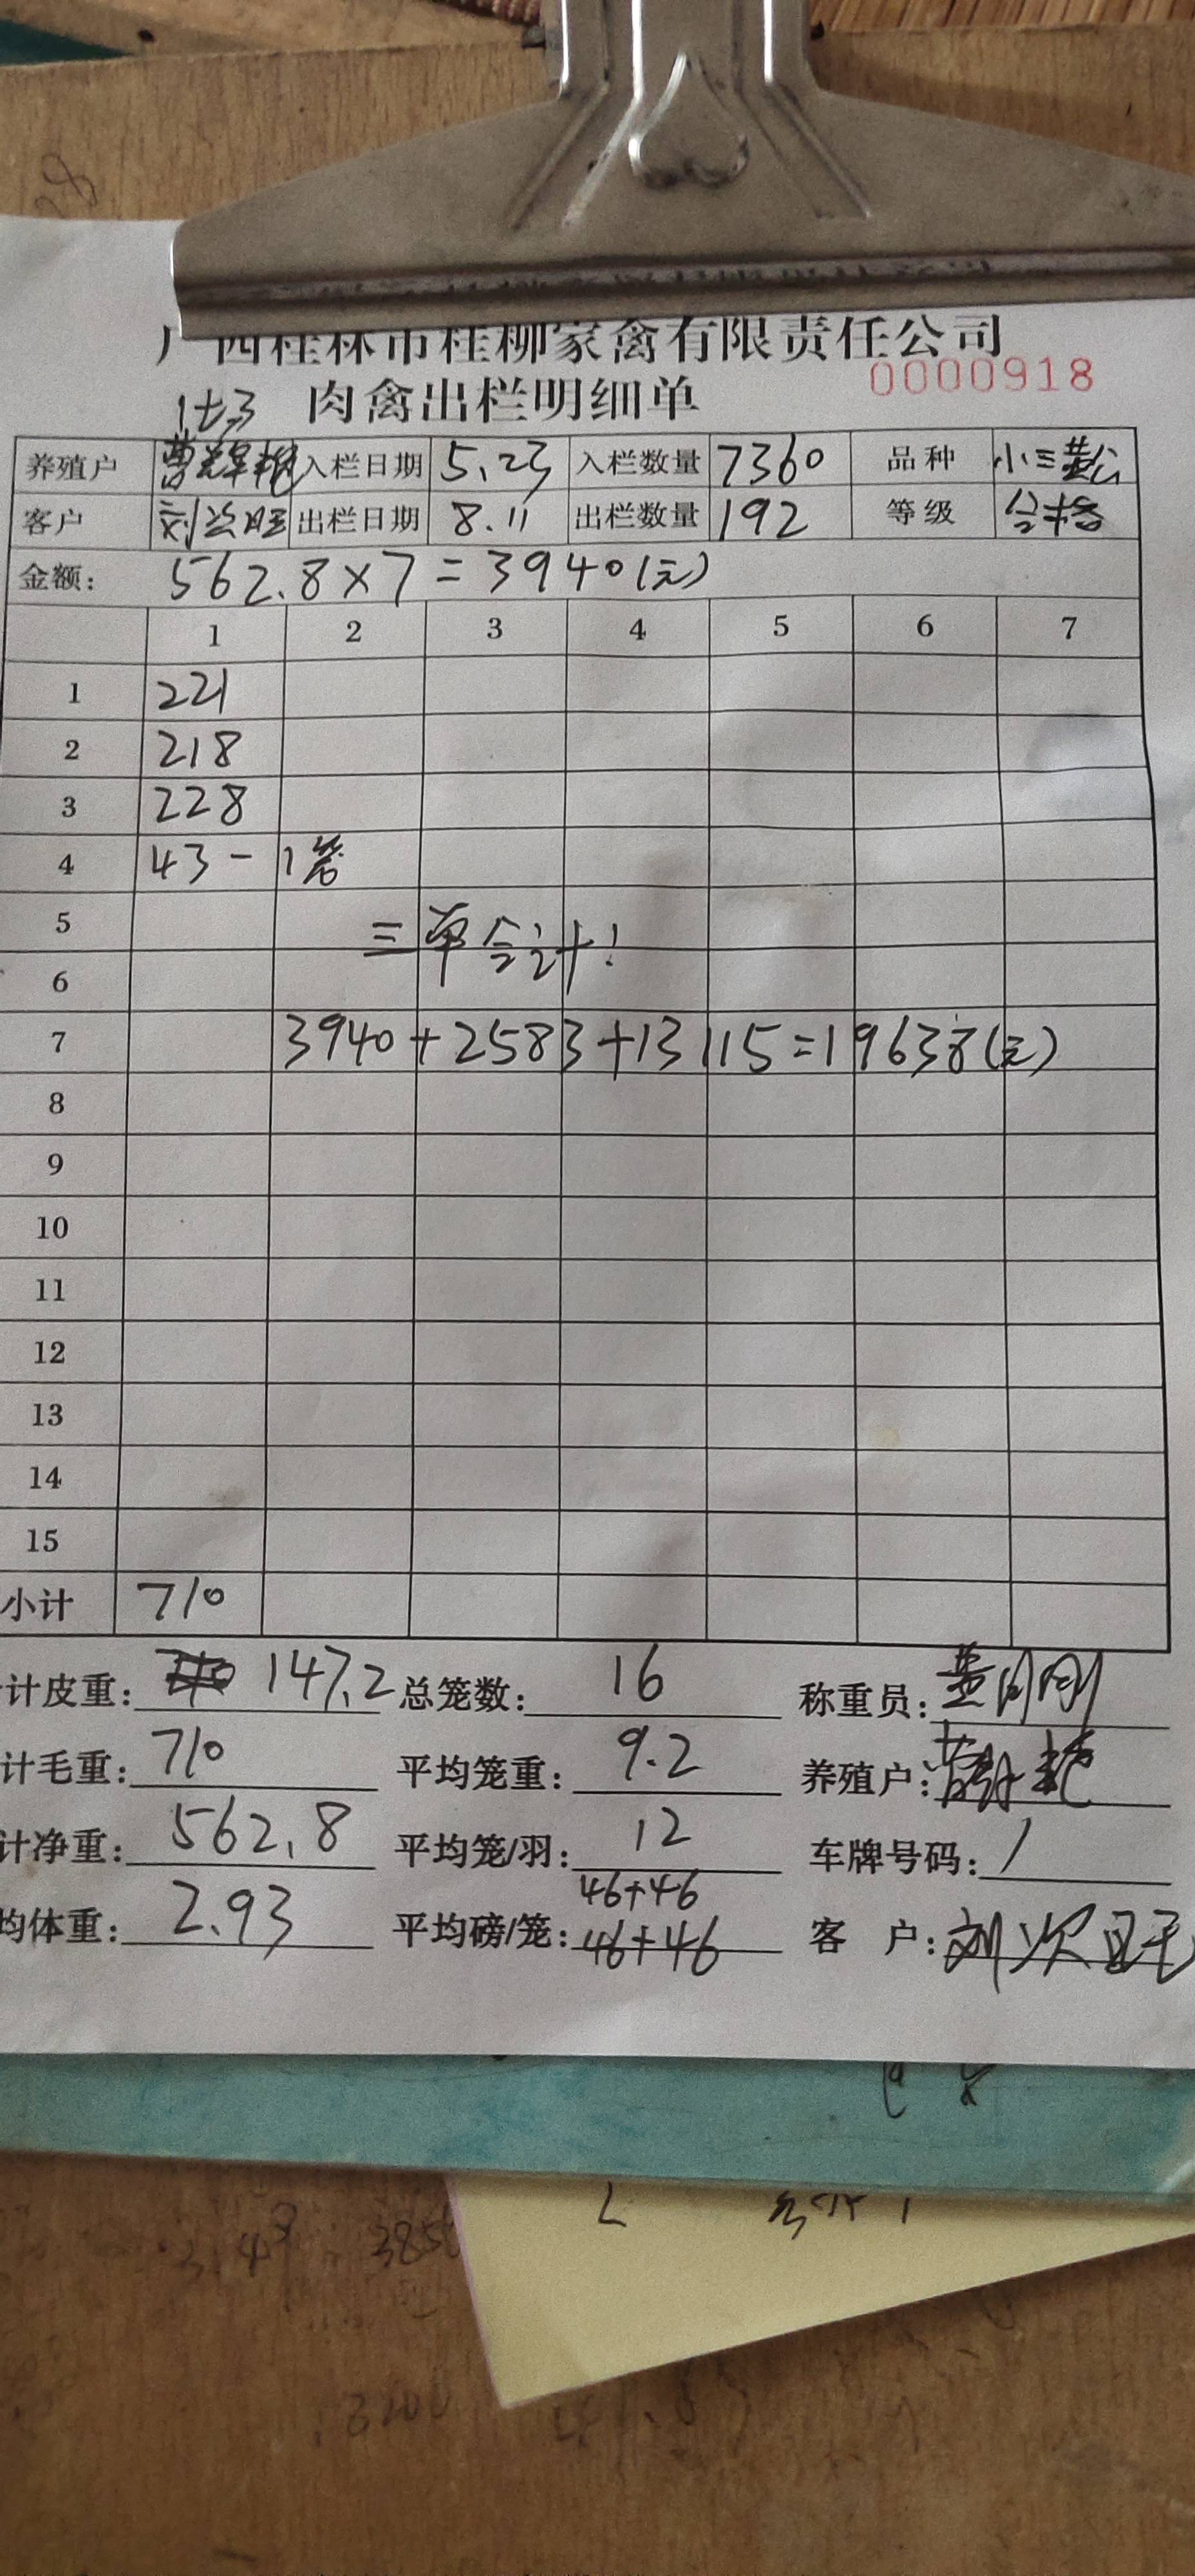 广西桂林市桂柳家禽有限责任公司
肉禽出栏明细单 0000918
养殖户 入栏日期 5.23 入栏数量 7360 品种 小三黄公
客户 出栏日期 8.11 出栏数量 192 等级 合格
金额: 562.8×7=3940(元)
1 2 3 4 5 6 7
1 221
2 218
3 228
4 43-1笼
5 三单合计:
6
7 3940+2583+13115=19638(元)
8
9
10
11
12
13
14
15
小计 710
计皮重: 147.2 总笼数: 16 称重员:
计毛重: 710 平均笼重: 9.2 养殖户:
计净重: 562.8 平均笼/羽: 12 车牌号码: /
46+46
均体重: 2.93 平均磅/笼: 46+46 客 户: 刘次旺